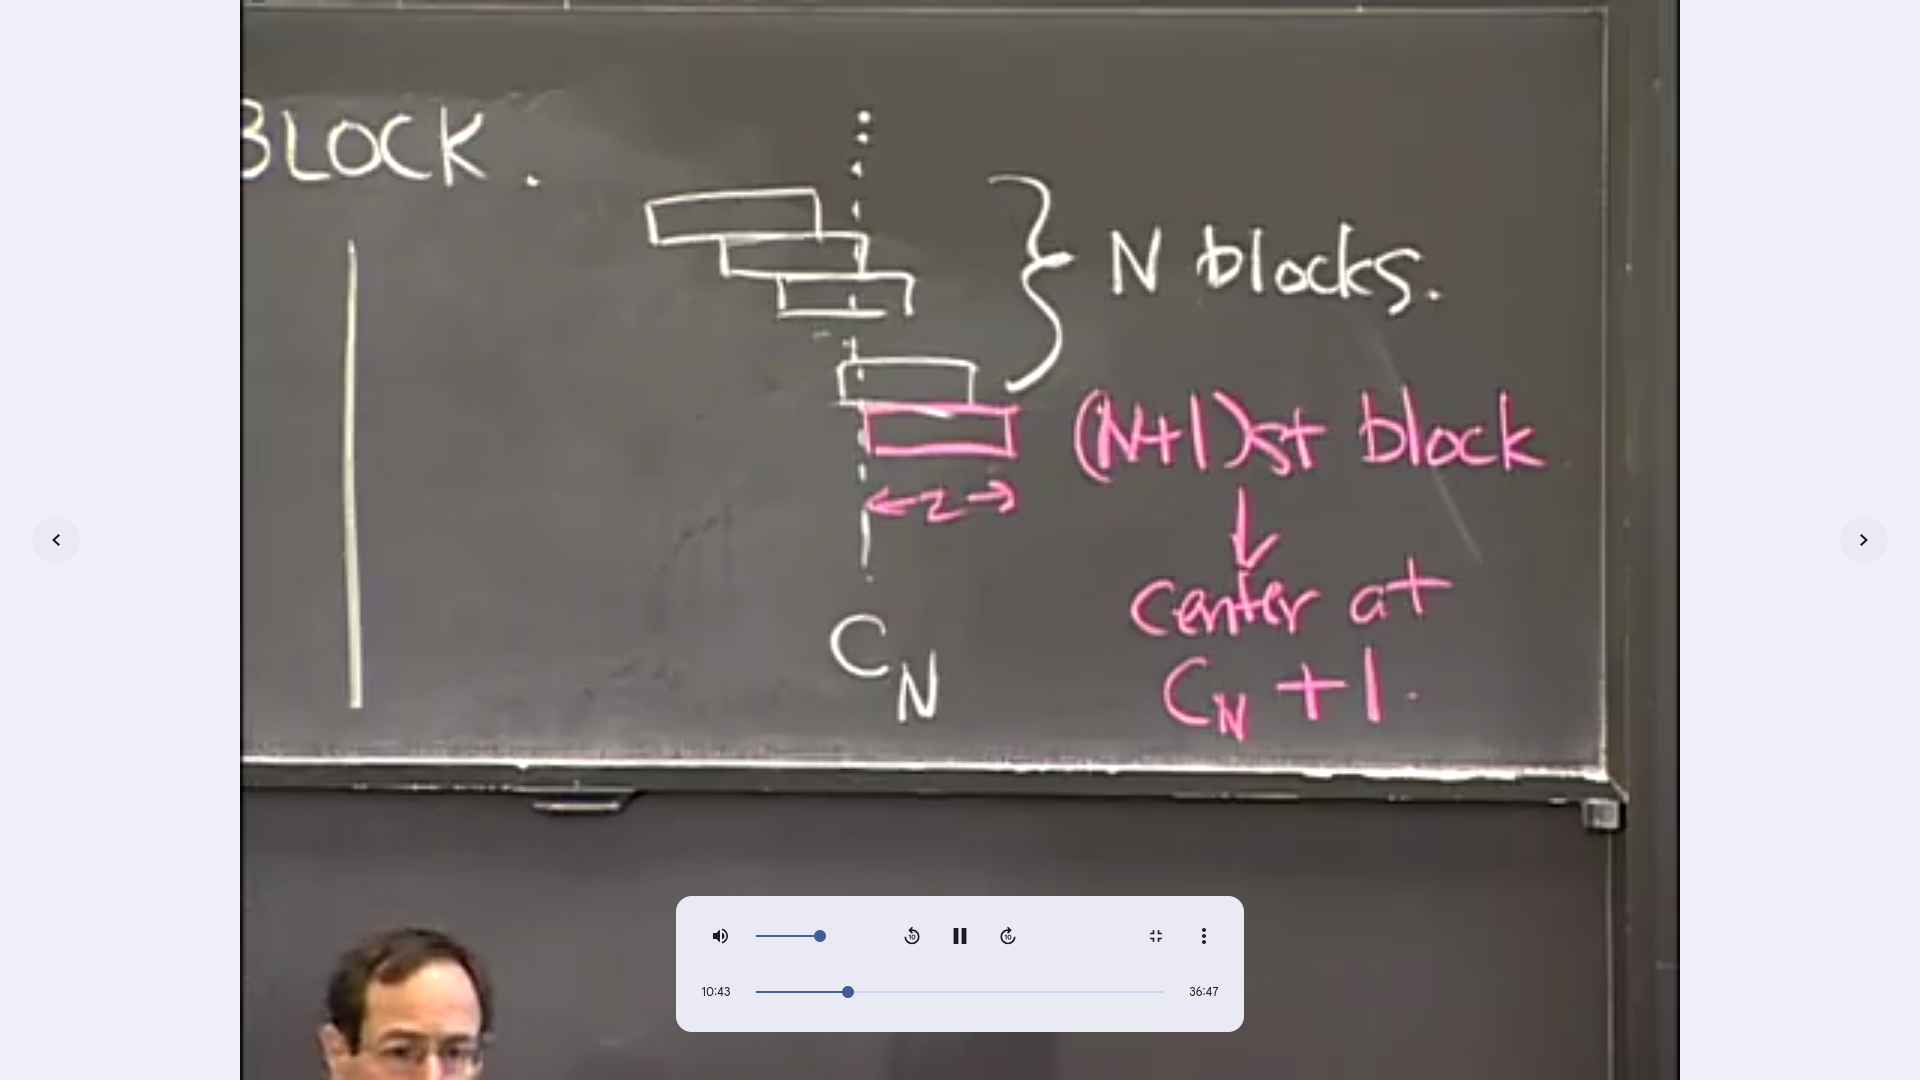 BLOCK.
N blocks.
(N+1)st block
2
center at
C_N + 1.
C_N
10:43
36:47